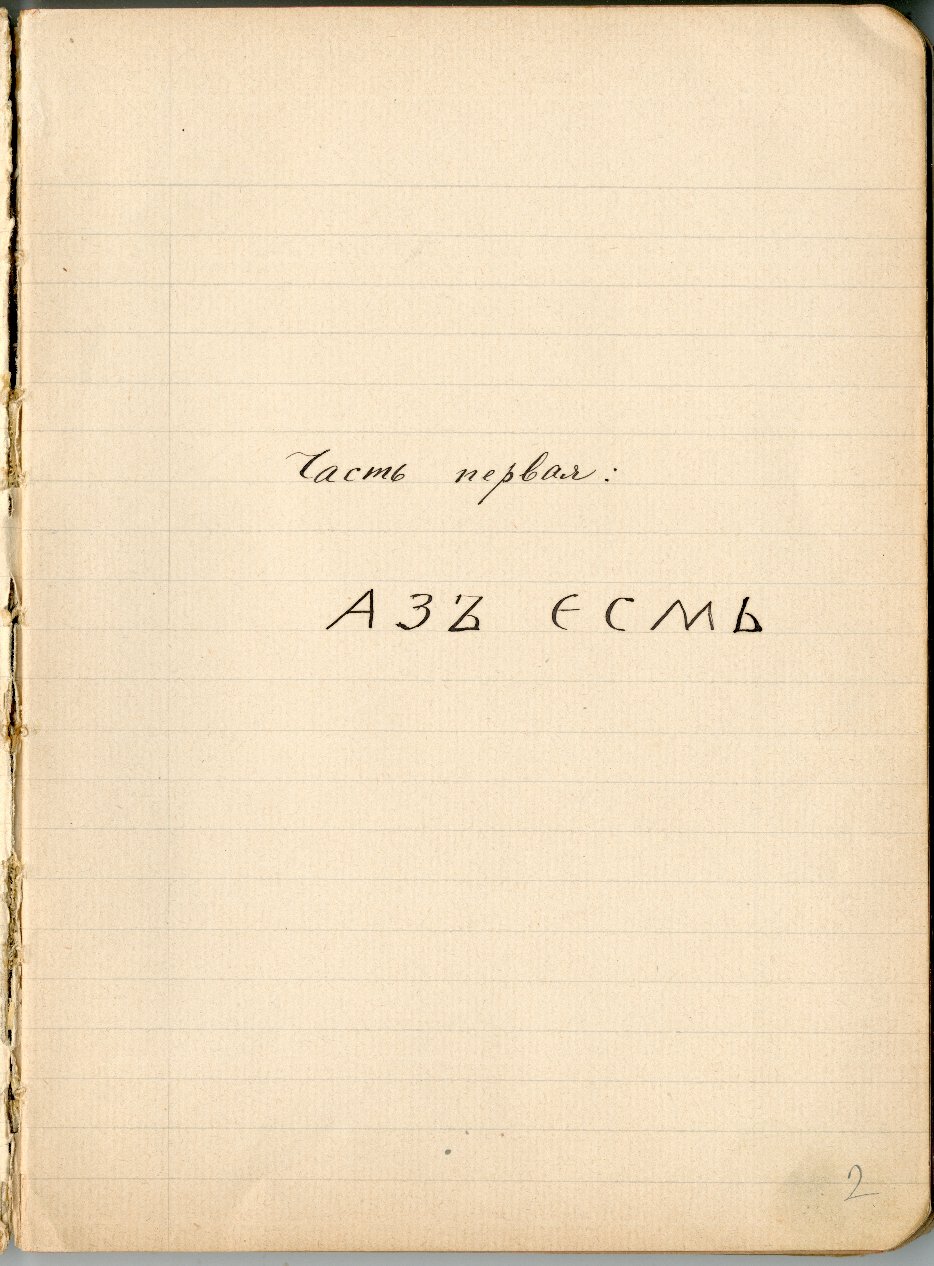 Часть первая:
АЗЪ ЕСМЬ
2